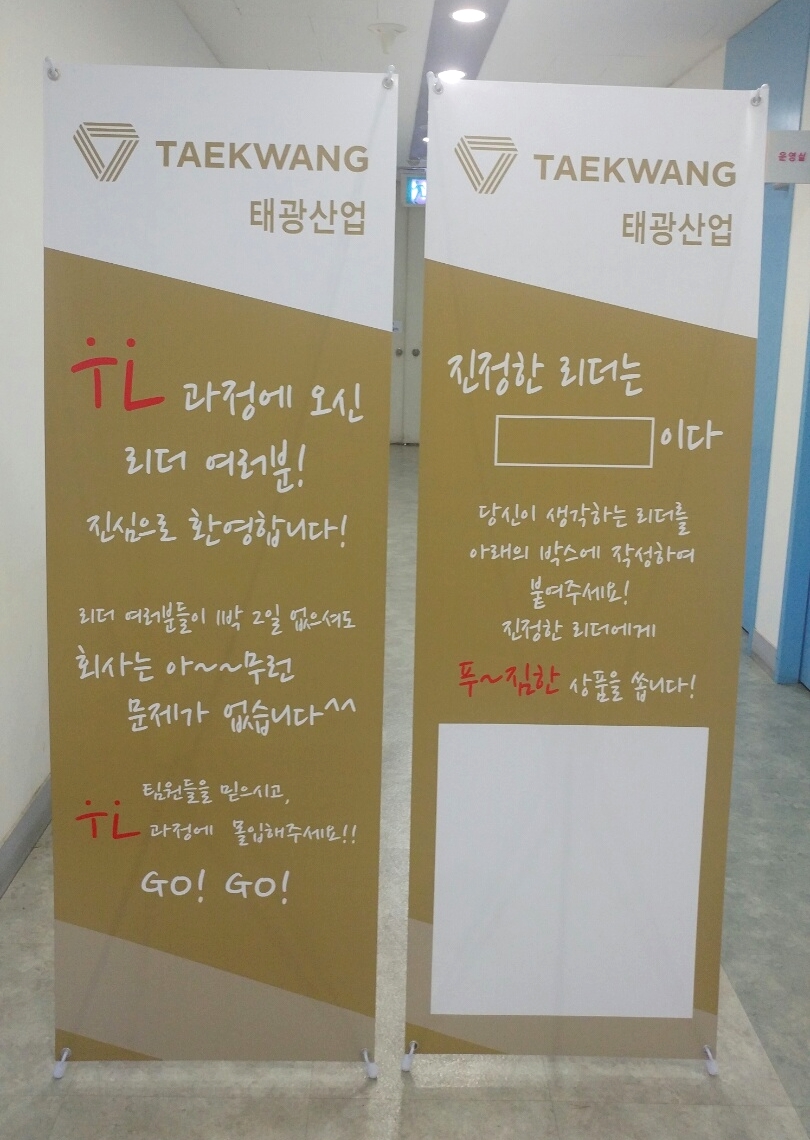 TAEKWANG
태광산업
과정에 오신
리더 여러분!
진심으로 환영합니다!
리더 여러분들이 1박 2일 없으셔도
회사는 아~~무런
문제가 없습니다^^
팀원들을 믿으시고,
과정에 몰입해주세요!!
GO! GO!
TAEKWANG
태광산업
진정한 리더는
이다
당신이 생각하는 리더를
아래의 박스에 작성하여
붙여주세요!
진정한 리더에게
푸~짐한 상품을 쏩니다!
운영실